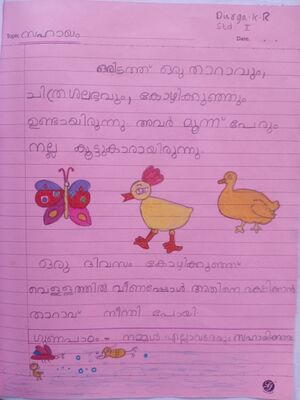 Durga.K.R
Std I
Topic: സഹായം
Date:
ഒരിടത്ത് ഒരു താറാവും,
ചിത്രശലഭവും, കോഴിക്കുഞ്ഞും
ഉണ്ടായിരുന്നു. അവർ മൂന്ന് പേരും
നല്ല കൂട്ടുകാരായിരുന്നു.
ഒരു ദിവസം കോഴിക്കുഞ്ഞ്
വെള്ളത്തിൽ വീണപ്പോൾ അതിനെ രക്ഷിക്കാൻ
താറാവ് നീന്തി പോയി
ഗുണപാഠം - നമ്മൾ എല്ലാവരേയും